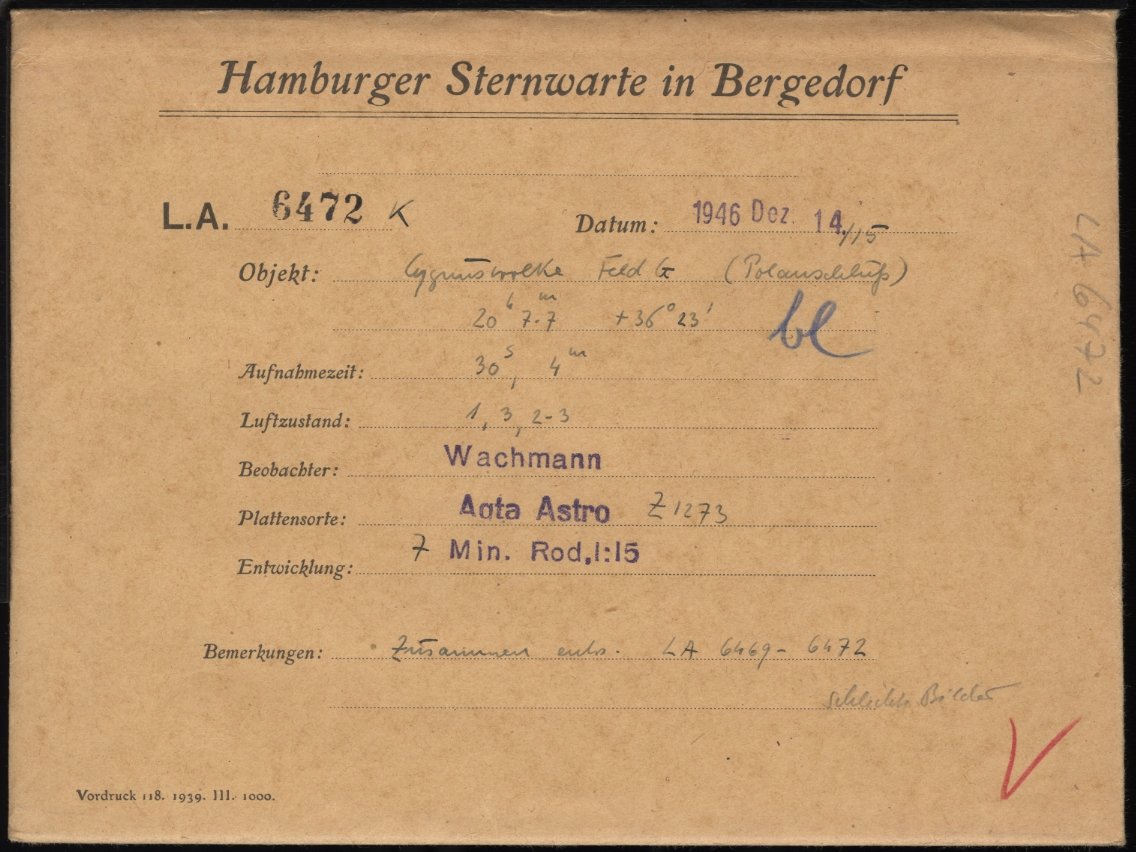 Hamburger Sternwarte in Bergedorf
L.A. 6472 K Datum: 1946 Dez. 14./15
Objekt: Cygnuswolke Feld G (Polanschluß)
20h 7.m7 +36° 23' bl
Aufnahmezeit: 30s, 4m
Luftzustand: 1, 3, 2-3
Beobachter: Wachmann
Plattensorte: Agfa Astro Z1273
Entwicklung: 7 Min. Rod,1:15
Bemerkungen: Zusammen entw. LA 6469-6472
schlechte Bilder
V
Vordruck 118. 1939. III. 1000.
LA 6472